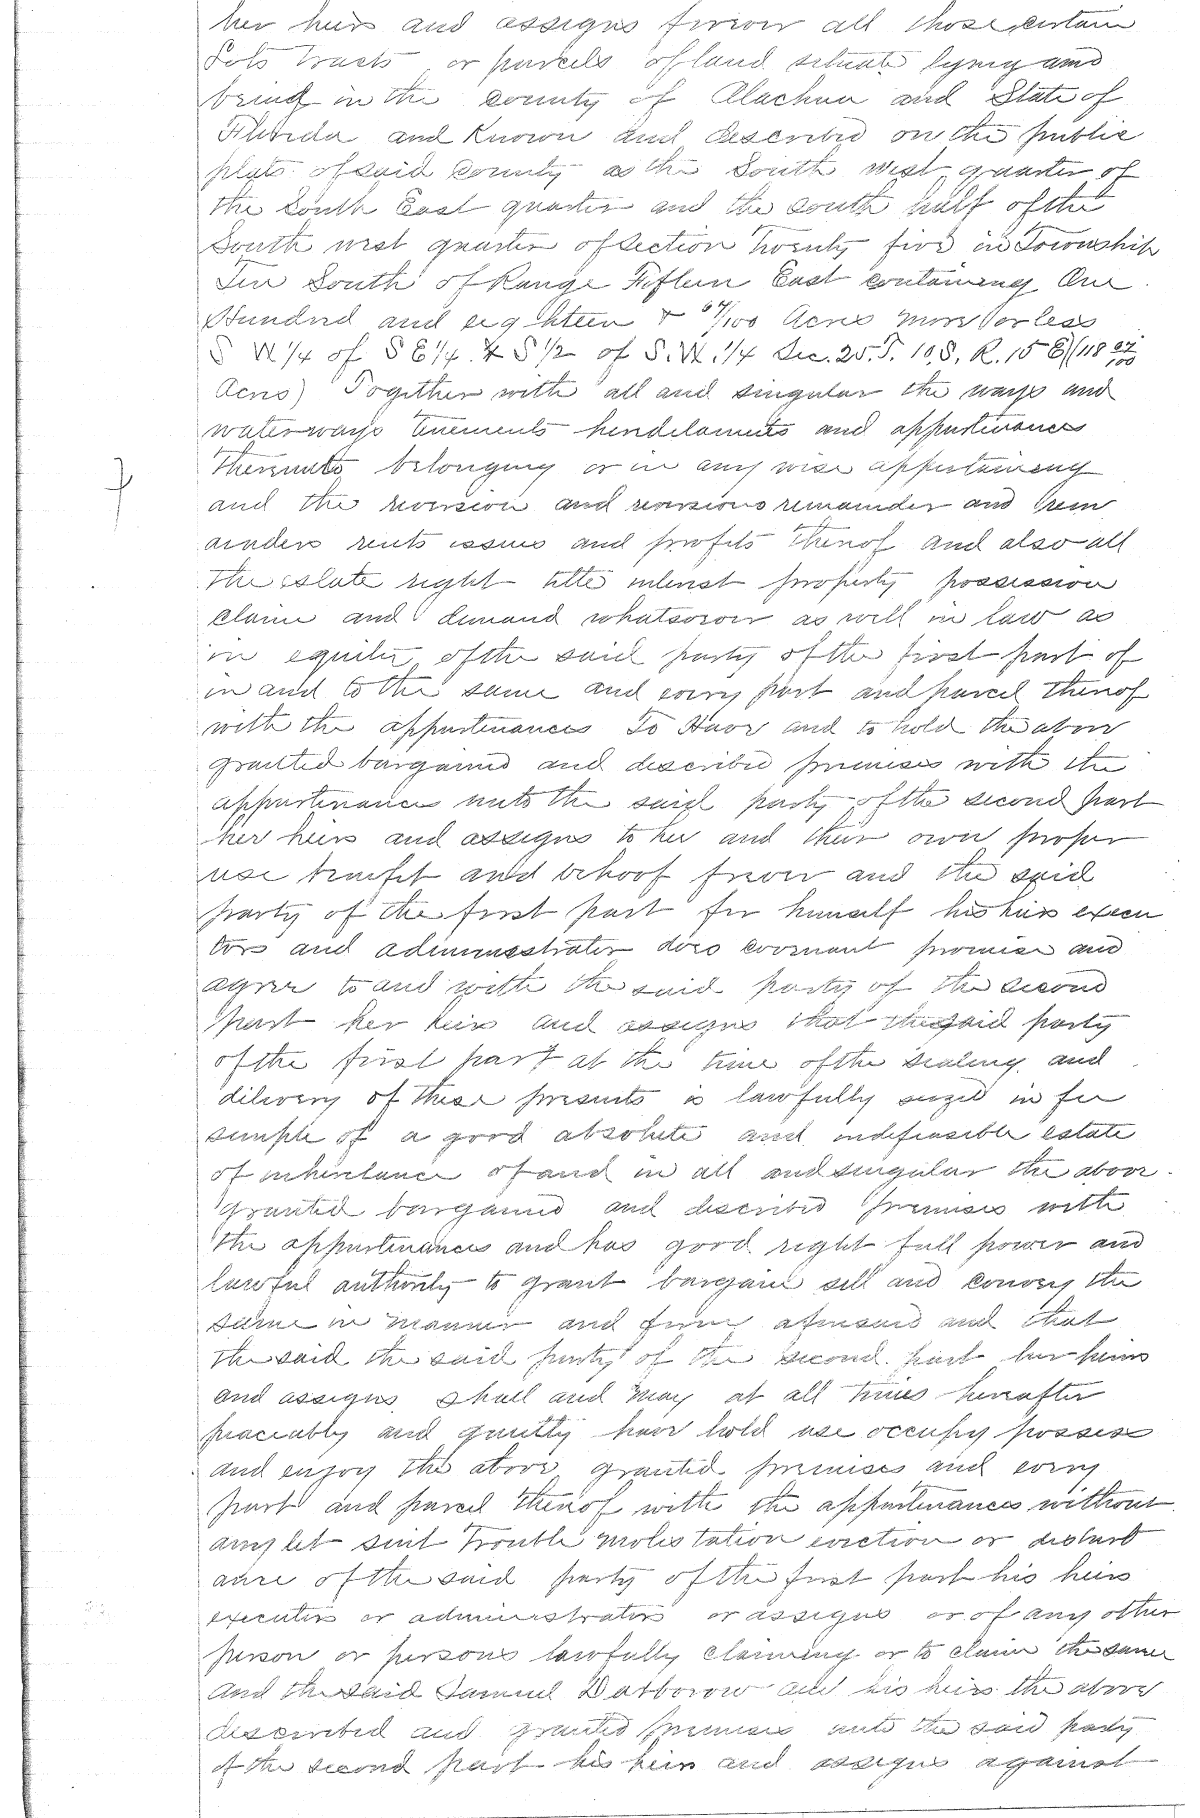 her heirs and assigns forever all those certain
Lots tracts or parcels of land situate lying and
being in the county of Alachua and State of
Florida and Known and described on the public
plats of said county as the South west quarter of
the South East quarter and the south half of the
South west quarter of section Twenty five in Township
Ten South of Range Fifteen East containing One
Hundred and eighteen & 67/100 Acres more or less
S W 1/4 of S E 1/4 & S 1/2 of S. W. 1/4 Sec. 25. T. 10 S. R. 15 E) (118 67/100
Acres) Together with all and singular the ways and
waterways tenements hereditaments and appurtenances
thereunto belonging or in any wise appertaining
and the reversion and reversions remainder and rem
ainders rents issues and profits thereof and also all
the estate right title interest property possession
claim and demand whatsoever as well in law as
in equity of the said party of the first part of
in and to the same and every part and parcel thereof
with the appurtenances To Have and to hold the above
granted bargained and described premises with the
appurtenances unto the said party of the second part
her heirs and assigns to her and their own proper
use benefit and behoof forever and the said
party of the first part for himself his heirs execu
tors and administrator does covenant promise and
agree to and with the said party of the second
part her heirs and assigns that the said party
of the first part at the time of the sealing and
delivery of these presents is lawfully seized in fee
simple of a good absolute and indefeasible estate
of inheritance of and in all and singular the above
granted bargained and described premises with
the appurtenances and has good right full power and
lawful authority to grant bargain sell and convey the
same in manner and form aforesaid and that
the said the said party of the second part her heirs
and assigns shall and may at all times hereafter
peaceably and quietly have hold use occupy possess
and enjoy the above granted premises and every
part and parcel thereof with the appurtenances without
any let suit trouble molestation eviction or disturb
ance of the said party of the first part his heirs
executors or administrators or assigns or of any other
person or persons lawfully claiming or to claim the same
And the said Samuel and his heirs the above
described and granted premises unto the said party
of the second part his heirs and assigns against